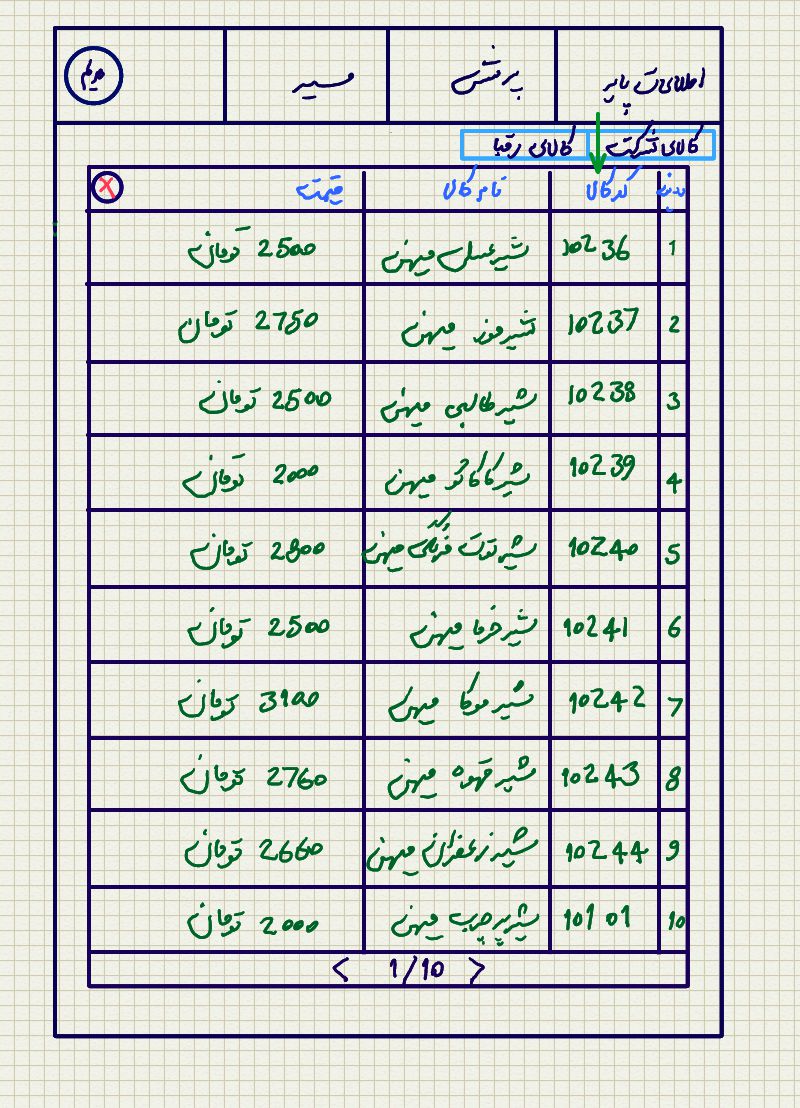 اطلاعات پایه پرسش مسیر مریم
کالای شرکت کالای رقبا
ردیف کد کالا نام کالا قیمت X
1 10236 شیر عسلی میهن 2500 تومان
2 10237 شیر موز میهن 2750 تومان
3 10238 شیر طالبی میهن 2500 تومان
4 10239 شیر کاکائو میهن 2000 تومان
5 10240 شیر توت فرنگی میهن 2800 تومان
6 10241 شیر خرما میهن 2500 تومان
7 10242 شیر موکا میهن 3100 تومان
8 10243 شیر قهوه میهن 2760 تومان
9 10244 شیر زعفران میهن 2660 تومان
10 10101 شیر پرچرب میهن 2000 تومان
< 1/10 >